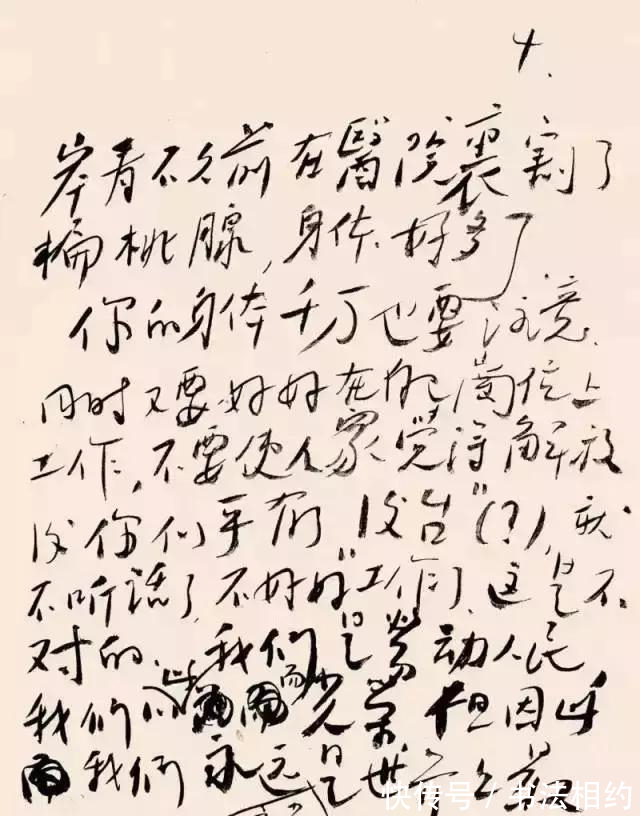 十.
岸青不久前在醫院裏割了
扁桃腺,身体好多了
你的身体千万也要注意.
同时又要好好在自己崗位上
工作,不要使人家覚得解放
后你似乎有"后台"(?),就
不听話了,不好好"工作了.这是不
对的. 我们是劳动人民
我们以此而光荣 但因此
我们永远是世界上最
快传号 / 书法相约